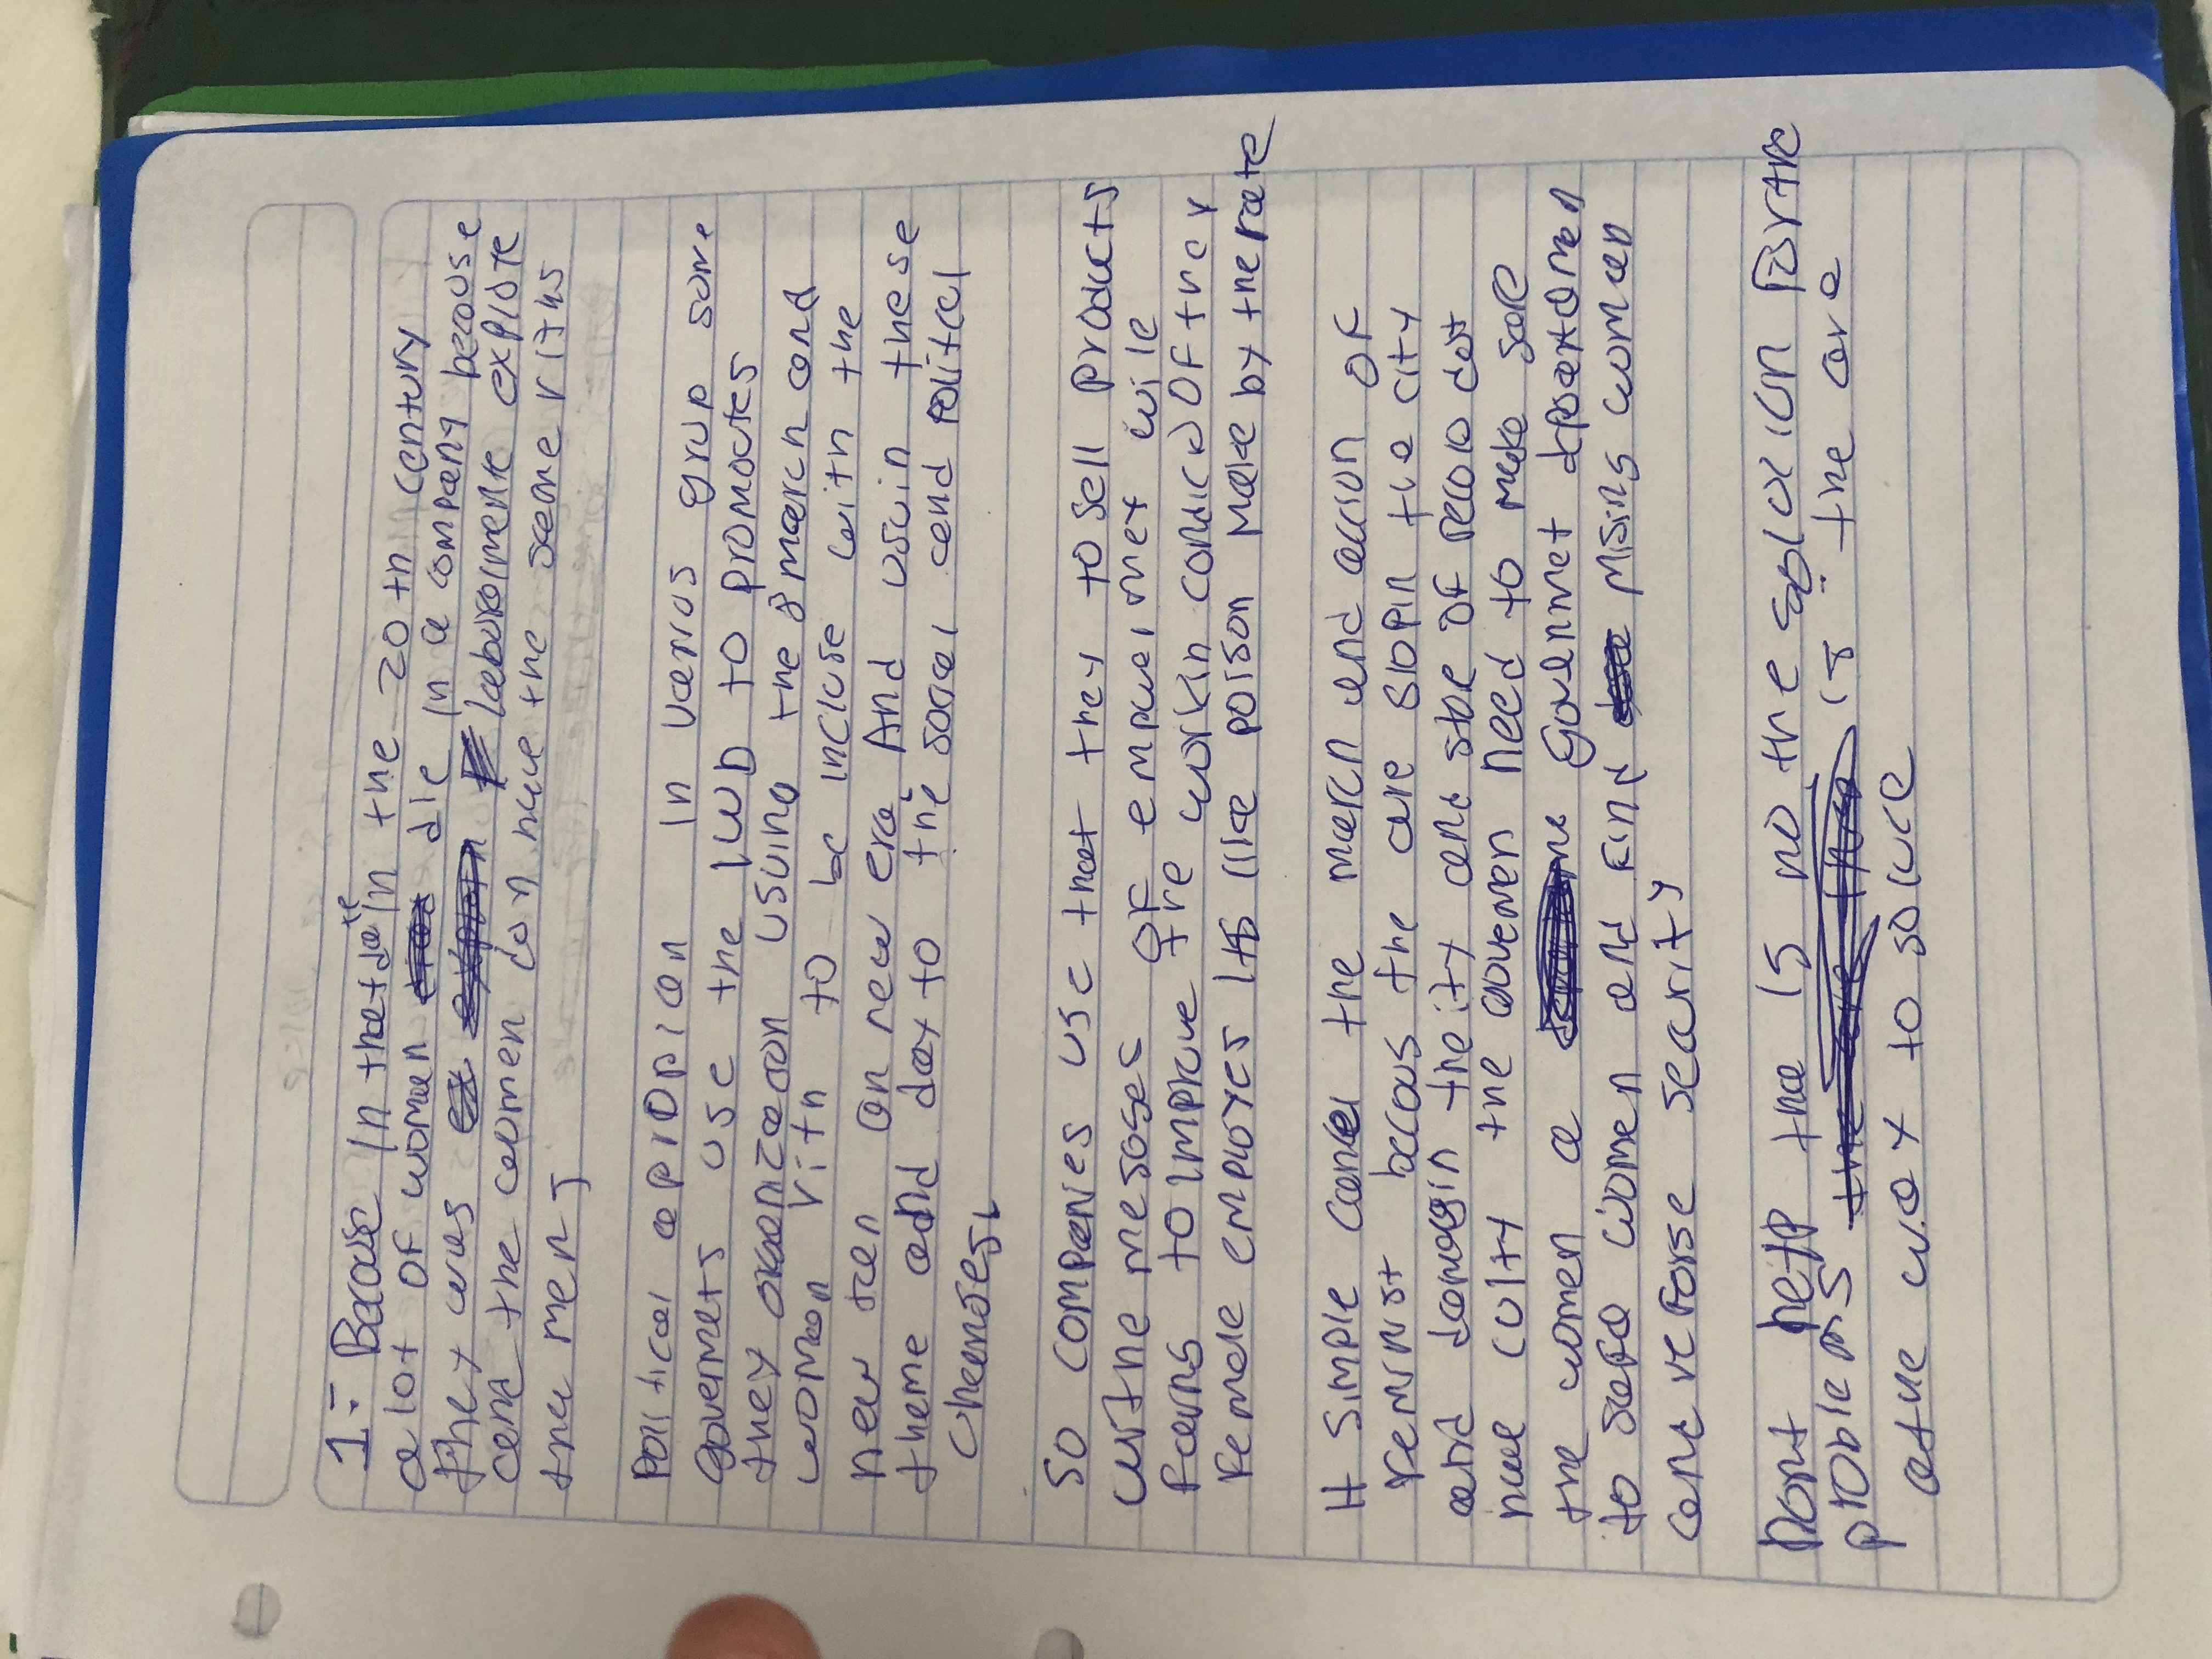 1:- Bacause In that date In the 20 th century
a lot of women die In a company because
they was labuoimene explote
and the women don have the same riths
the men J
Political apiopian In varius grup some
Govermets use the IWD to promoctes
they organizacion using the 8 march and
woman vith to be incluse with the
new on new era And usuin these
theme and day to the social and political
So companies use that they to sell products
wthe messages of empuelmet wile
feans to improve fre workin condicio of they
female employes its like poison make by the rate
It Simple cancel the march and accion of
feminist becaus the are stopin the city
and damagin the ity and stae of peclo dot
have culty the governen need to make safe
the women a Gouernmet departamen
to safe women and find mising woman
and reforse security
Dont help the Is no the solocion for the
problems is the are
atue way to solve